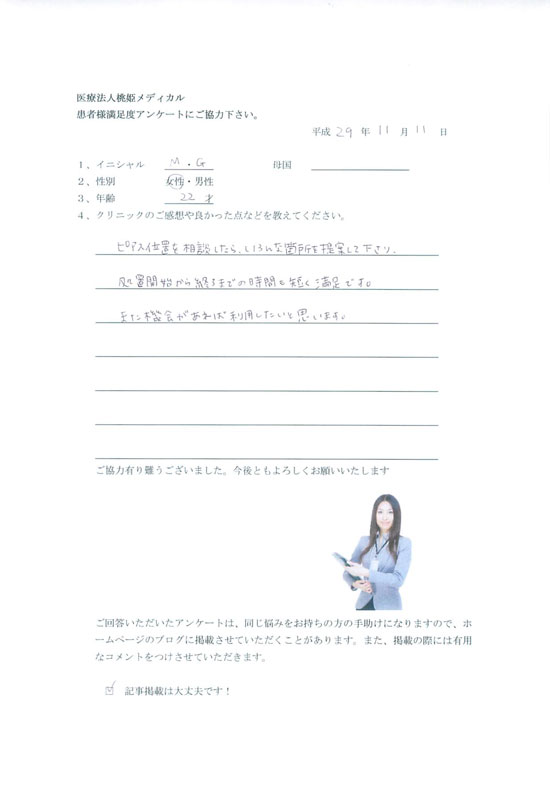 医療法人桃姫メディカル
患者様満足度アンケートにご協力下さい。
平成 29 年 11 月 11 日
1、イニシャル M・G 母国
2、性別 女性・男性
3、年齢 22才
4、クリニックのご感想や良かった点などを教えてください。
ピアス位置を相談したら、いろんな箇所を提案して下さり、
処置開始から終了までの時間も短く満足です。
また機会があれば利用したいと思います。
ご協力有り難うございました。今後ともよろしくお願いいたします
ご回答いただいたアンケートは、同じ悩みをお持ちの方の手助けになりますので、ホ
ームページのブログに掲載させていただくことがあります。また、掲載の際には有用
なコメントをつけさせていただきます。
☑ 記事掲載は大丈夫です！